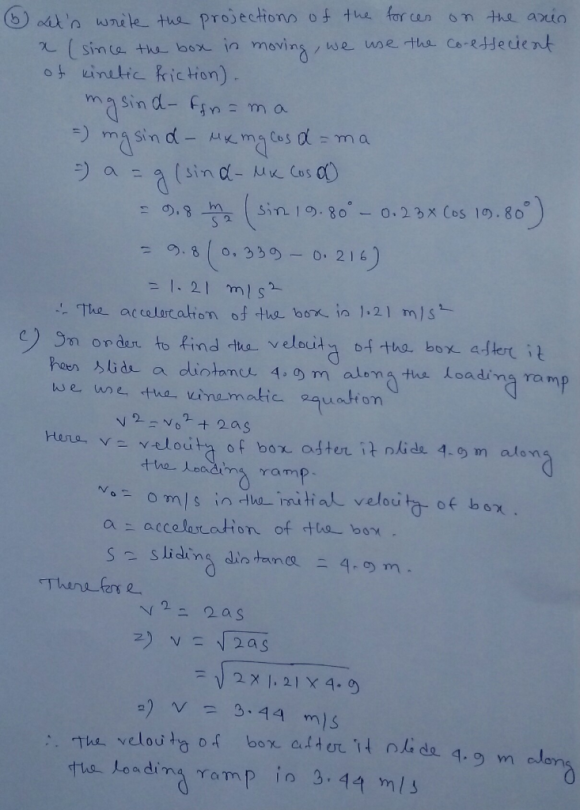 (b) Let's write the projections of the forces on the axis
x (since the box is moving, we use the co-effecient
of kinetic friction).
mg sin α - Ffn = ma
⇒) mg sin α - μK mg cos α = ma
⇒) a = g (sin α - μK cos α)
= 9.8 m/s² (sin 19.80° - 0.23 × cos 19.80°)
= 9.8 (0.339 - 0.216)
= 1.21 m/s²
∴ The acceleration of the box is 1.21 m/s²
c) In order to find the velocity of the box after it
has slide a distance 4.9 m along the loading ramp
we use the kinematic equation
v² = v₀² + 2as
Here v = velocity of box after it slide 4.9 m along
the loading ramp.
v₀ = 0 m/s is the initial velocity of box.
a = acceleration of the box.
s = sliding distance = 4.9 m.
Therefore
v² = 2as
⇒) v = √2as
= √2 × 1.21 × 4.9
⇒) v = 3.44 m/s
∴ The velocity of box after it slide 4.9 m along
the loading ramp is 3.44 m/s